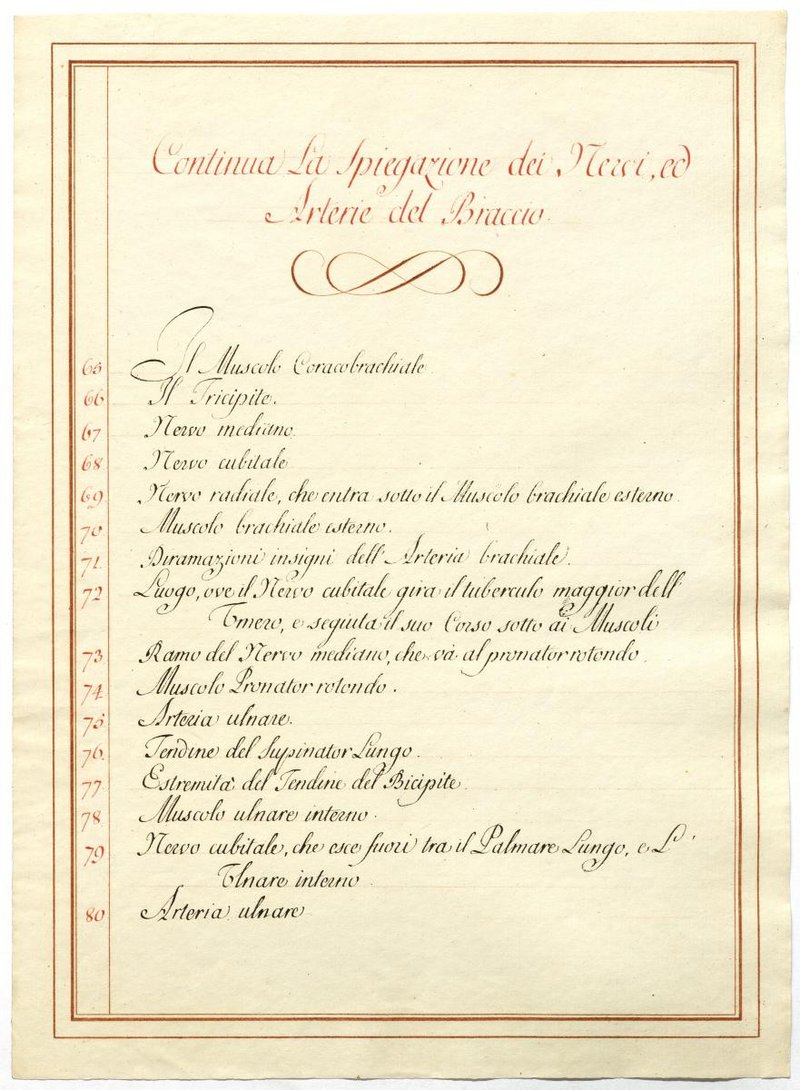 Continua La Spiegazione dei Nervi, ed
Arterie del Braccio.
65 Il Muscolo Coracobrachiale
66 Il Tricipite.
67 Nervo mediano.
68 Nervo cubitale
69 Nervo radiale, che entra sotto il Muscolo brachiale esterno.
70 Muscolo brachiale esterno.
71 Diramazioni insigni dell' Arteria brachiale.
72 Luogo, ove il Nervo cubitale gira il tuberculo maggior dell'
Umero, e seguita il suo Corso sotto ai Muscoli
73 Ramo del Nervo mediano, che và al pronator rotondo.
74 Muscolo Pronator rotondo.
75 Arteria ulnare.
76 Tendine del Supinator Lungo.
77 Estremità del Tendine del Bicipite.
78 Muscolo ulnare interno.
79 Nervo cubitale, che esce fuori tra il Palmare Lungo, e L'
Ulnare interno.
80 Arteria ulnare